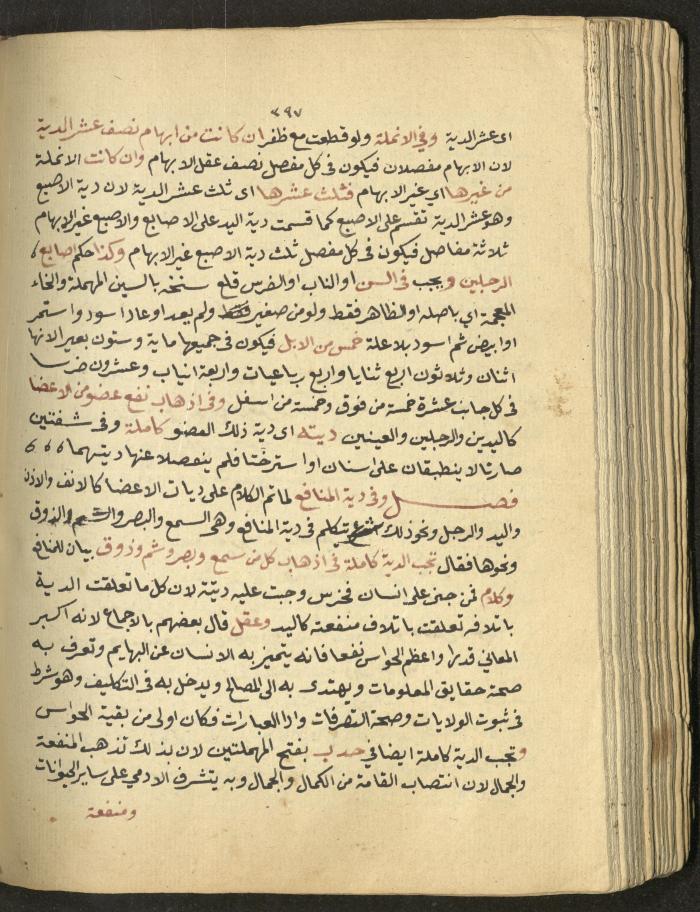 ٣٩٧
اى عشر الدية وفى الانملة ولو قطعت مع ظفر ان كانت من ابهام نصف عشر الدية
لان الابهام مفصلان فيكون فى كل مفصل نصف عقل الابهام وان كانت الانملة
من غيرها اى غير الابهام فثلث عشرها اى ثلث عشر الدية لان دية الاصبع
وهو عشر الدية تقسم على الاصبع كما قسمت دية اليد على الاصابع والاصبع غير الابهام
ثلاثة مفاصل فيكون فى كل مفصل ثلث دية الاصبع غير الابهام وكذا حكم اصابع
الرجلين ويجب فى السن او الناب او الضرس قلع سنخه بالسين المهملة والخاء
المعجمة اي باصله او الظاهر فقط ولو من صغير ولم يعد او عاد اسود واستمر
او ابيض ثم اسود بلا علة خمس من الابل فيكون فى جميعها ماية وستون بعير الانها
اثنان وثلاثون اربع ثنايا واربع رباعيات واربعة انياب وعشرون ضرسا
فى كل جانب عشرة خمسة من فوق وخمسة من اسفل وفى اذهاب نفع عضو من الاعضا
كاليدين والرجلين والعينين ديته اى دية ذلك العضو كاملة وفى شفتين
صارتا لا ينطبقان على اسنان او استرختا فلم ينفصلا عنها ديتهما
فصل وفى دية المنافع لما تم الكلام على ديات الاعضا كالانف والاذن
واليد والرجل ونحو ذلك شرع يتكلم فى دية المنافع وهى السمع والبصر والشم والذوق
ونحوها فقال تجب الدية كاملة فى اذهاب كل من سمع وبصر وشم وذوق بيان للمنافع
وكلام فمن جنى على انسان فخرس وجبت عليه ديته لان كل ما تعلقت الدية
باتلافه تعلقت باتلاف منفعته كاليد وعقل قال بعضهم بالاجماع لانه اكبر
المعانى قدرا واعظم الحواس نفعا فانه يتميز به الانسان عن البهايم وتعرف به
صحة حقايق المعلومات ويهتدى به الى المصالح ويدخل به فى التكليف وهو شرط
فى ثبوت الولايات وصحة التصرفات وادا العبارات فكان اولى من بقية الحواس
وتجب الدية كاملة ايضا فى حدب بفتح المهملتين لان بذلك تذهب المنفعة
والجمال لان انتصاب القامة من الكمال والجمال وبه يتشرف الادمي على ساير الحيوانات
ومنفعة